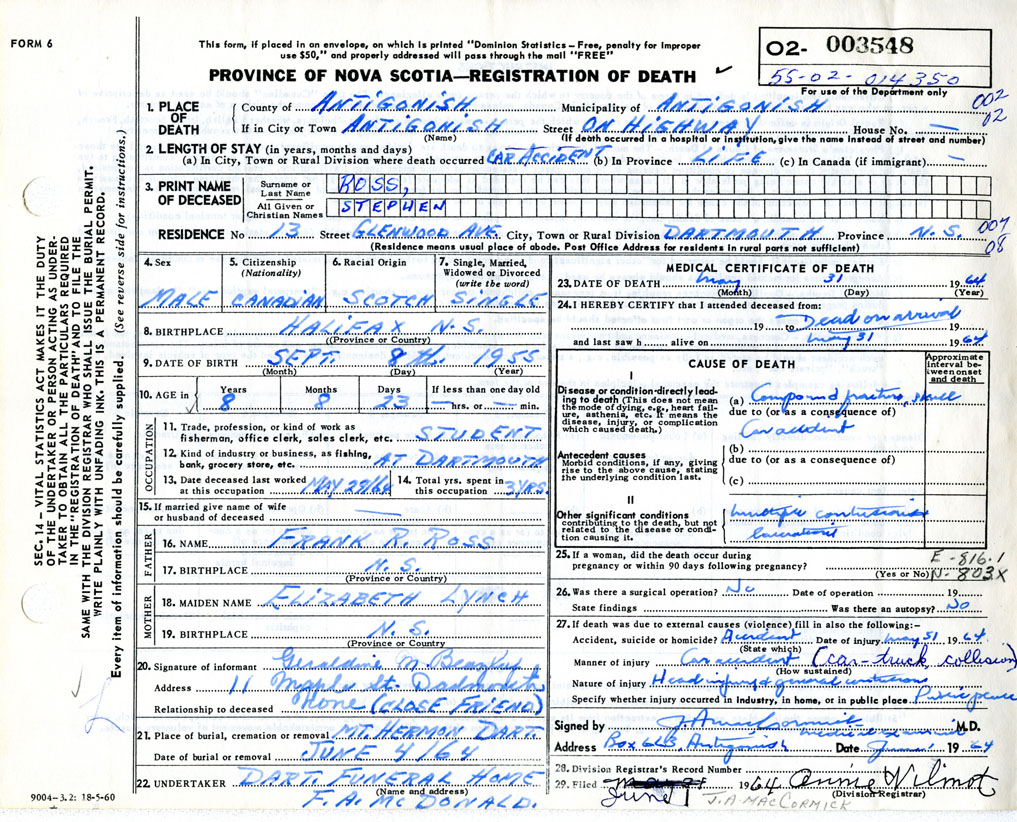 FORM 6
This form, if placed in an envelope, on which is printed "Dominion Statistics – Free, penalty for improper
use $50," and properly addressed will pass through the mail "FREE"
PROVINCE OF NOVA SCOTIA—REGISTRATION OF DEATH
02- 003548
55-02-014350
For use of the Department only
002
02
1. PLACE OF DEATH
County of ANTIGONISH Municipality of ANTIGONISH
If in City or Town ANTIGONISH Street ON HIGHWAY House No. —
(Name) (If death occurred in a hospital or institution, give the name instead of street and number)
2. LENGTH OF STAY (in years, months and days)
(a) In City, Town or Rural Division where death occurred CAR ACCIDENT (b) In Province LIFE (c) In Canada (if immigrant) —
3. PRINT NAME OF DECEASED
Surname or Last Name ROSS,
All Given or Christian Names STEPHEN
RESIDENCE No 13 Street GLENWOOD AVE. City, Town or Rural Division DARTMOUTH Province N.S.
007
08
(Residence means usual place of abode. Post Office Address for residents in rural parts not sufficient)
4. Sex MALE
5. Citizenship (Nationality) CANADIAN
6. Racial Origin SCOTCH
7. Single, Married, Widowed or Divorced (write the word) SINGLE
8. BIRTHPLACE HALIFAX N.S.
(Province or Country)
9. DATE OF BIRTH SEPT. 8th. 1955
(Month) (Day) (Year)
10. AGE in Years 8 Months 8 Days 23 If less than one day old — hrs. or — min.
OCCUPATION
11. Trade, profession, or kind of work as
fisherman, office clerk, sales clerk, etc. STUDENT
12. Kind of industry or business, as fishing,
bank, grocery store, etc. AT DARTMOUTH
13. Date deceased last worked at this occupation MAY 29/64 14. Total yrs. spent in this occupation 3 YRS.
15. If married give name of wife
or husband of deceased —
FATHER
16. NAME FRANK R. ROSS
17. BIRTHPLACE N.S.
(Province or Country)
MOTHER
18. MAIDEN NAME ELIZABETH LYNCH
19. BIRTHPLACE N.S.
(Province or Country)
20. Signature of informant Geraldine M.
Address 11 Maple St. Dartmouth
Relationship to deceased None (CLOSE FRIEND)
21. Place of burial, cremation or removal MT. HERMON DART.
Date of burial or removal JUNE 4/64
22. UNDERTAKER DART. FUNERAL HOME
(Name and address)
F. A. MCDONALD.
MEDICAL CERTIFICATE OF DEATH
23. DATE OF DEATH May 31 1964
(Month) (Day) (Year)
24. I HEREBY CERTIFY that I attended deceased from:
19 to Dead on arrival 19
and last saw h alive on May 31 1964
CAUSE OF DEATH
Approximate interval between onset and death
I
Disease or condition directly leading to death (This does not mean the mode of dying, e.g., heart failure, asthenia, etc. It means the disease, injury, or complication which caused death.)
(a) Compound fracture, skull
due to (or as a consequence of)
Car accident
Antecedent causes
Morbid conditions, if any, giving rise to the above cause, stating the underlying condition last.
(b)
due to (or as a consequence of)
(c)
II
Other significant conditions
contributing to the death, but not related to the disease or condition causing it.
multiple contusions
lacerations
25. If a woman, did the death occur during
pregnancy or within 90 days following pregnancy?
(Yes or No)
E-816.1
N-803X
26. Was there a surgical operation? No Date of operation 19
State findings Was there an autopsy? No
27. If death was due to external causes (violence) fill in also the following:-
Accident, suicide or homicide? Accident Date of injury May 31 1964
(State which)
Manner of injury Car accident (car-truck collision)
(How sustained)
Nature of injury Head injury & general contusions
Specify whether injury occurred in industry, in home, or in public place Public place
Signed by J. A. MacCormick M.D.
medical examiner
Address Box 663, Antigonish Date June 1 1964
28. Division Registrar's Record Number
29. Filed June 1 1964 Annie Wilmot
(Division Registrar)
J. A. MACCORMICK
SEC. 14 – VITAL STATISTICS ACT MAKES IT THE DUTY
OF THE UNDERTAKER OR PERSON ACTING AS UNDER-
TAKER TO OBTAIN ALL THE PARTICULARS REQUIRED
IN THE "REGISTRATION OF DEATH" AND TO FILE THE
SAME WITH THE DIVISION REGISTRAR WHO SHALL ISSUE THE BURIAL PERMIT.
WRITE PLAINLY WITH UNFADING INK. THIS IS A PERMANENT RECORD.
Every item of information should be carefully supplied. (See reverse side for instructions.)
9004–3.2: 18-5-60